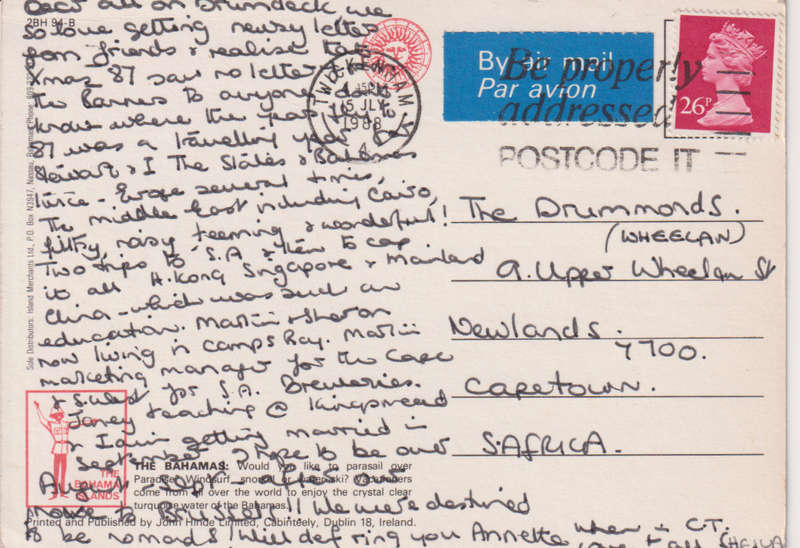 Dear all on Drumdeck we
so love getting newsy letter
from friends & realise that
Xmas 87 saw no letter
to anyone - don't
know where the year
87 was a travelling year
Stewart & I The States & Bahamas
twice - Europe several times,
The middle East including Cairo,
filthy, noisy teeming & wonderful!
Two trips to S.A & then to cap
it all H.Kong Singapore & Mainland
China - which was such an
education. Martin & Sharon
now living in Camps Bay. Martin
marketing manager for the Cape
& S.West for S.A. Breweries.
Janey teaching @ Kingsmead
& Iain getting married in
September I hope to be over
August - Sept - after our
move to Brussels!! We were destined
to be nomads! Will def ring you Annette when in C.T.
love & all SHEILA
2BH 94-B
Sole Distributors: Island Merchants Ltd., P.O. Box N3947, Nassau, Bahamas. Phone
TWICKENHAM
5 JLY
1988
By air mail
Par avion
Be properly
addressed
POSTCODE IT
26P
The Drummonds.
(WHEELAN)
9. Upper Wheelan St
Newlands.
7700.
CAPETOWN.
S.AFRICA.
THE
BAHAMA
ISLANDS
THE BAHAMAS: Would you like to parasail over
Paradise, Windsurf, snorkel or waterski? Vacationers
come from all over the world to enjoy the crystal clear
turquoise water of the Bahamas.
Printed and Published by John Hinde Limited, Cabinteely, Dublin 18, Ireland.